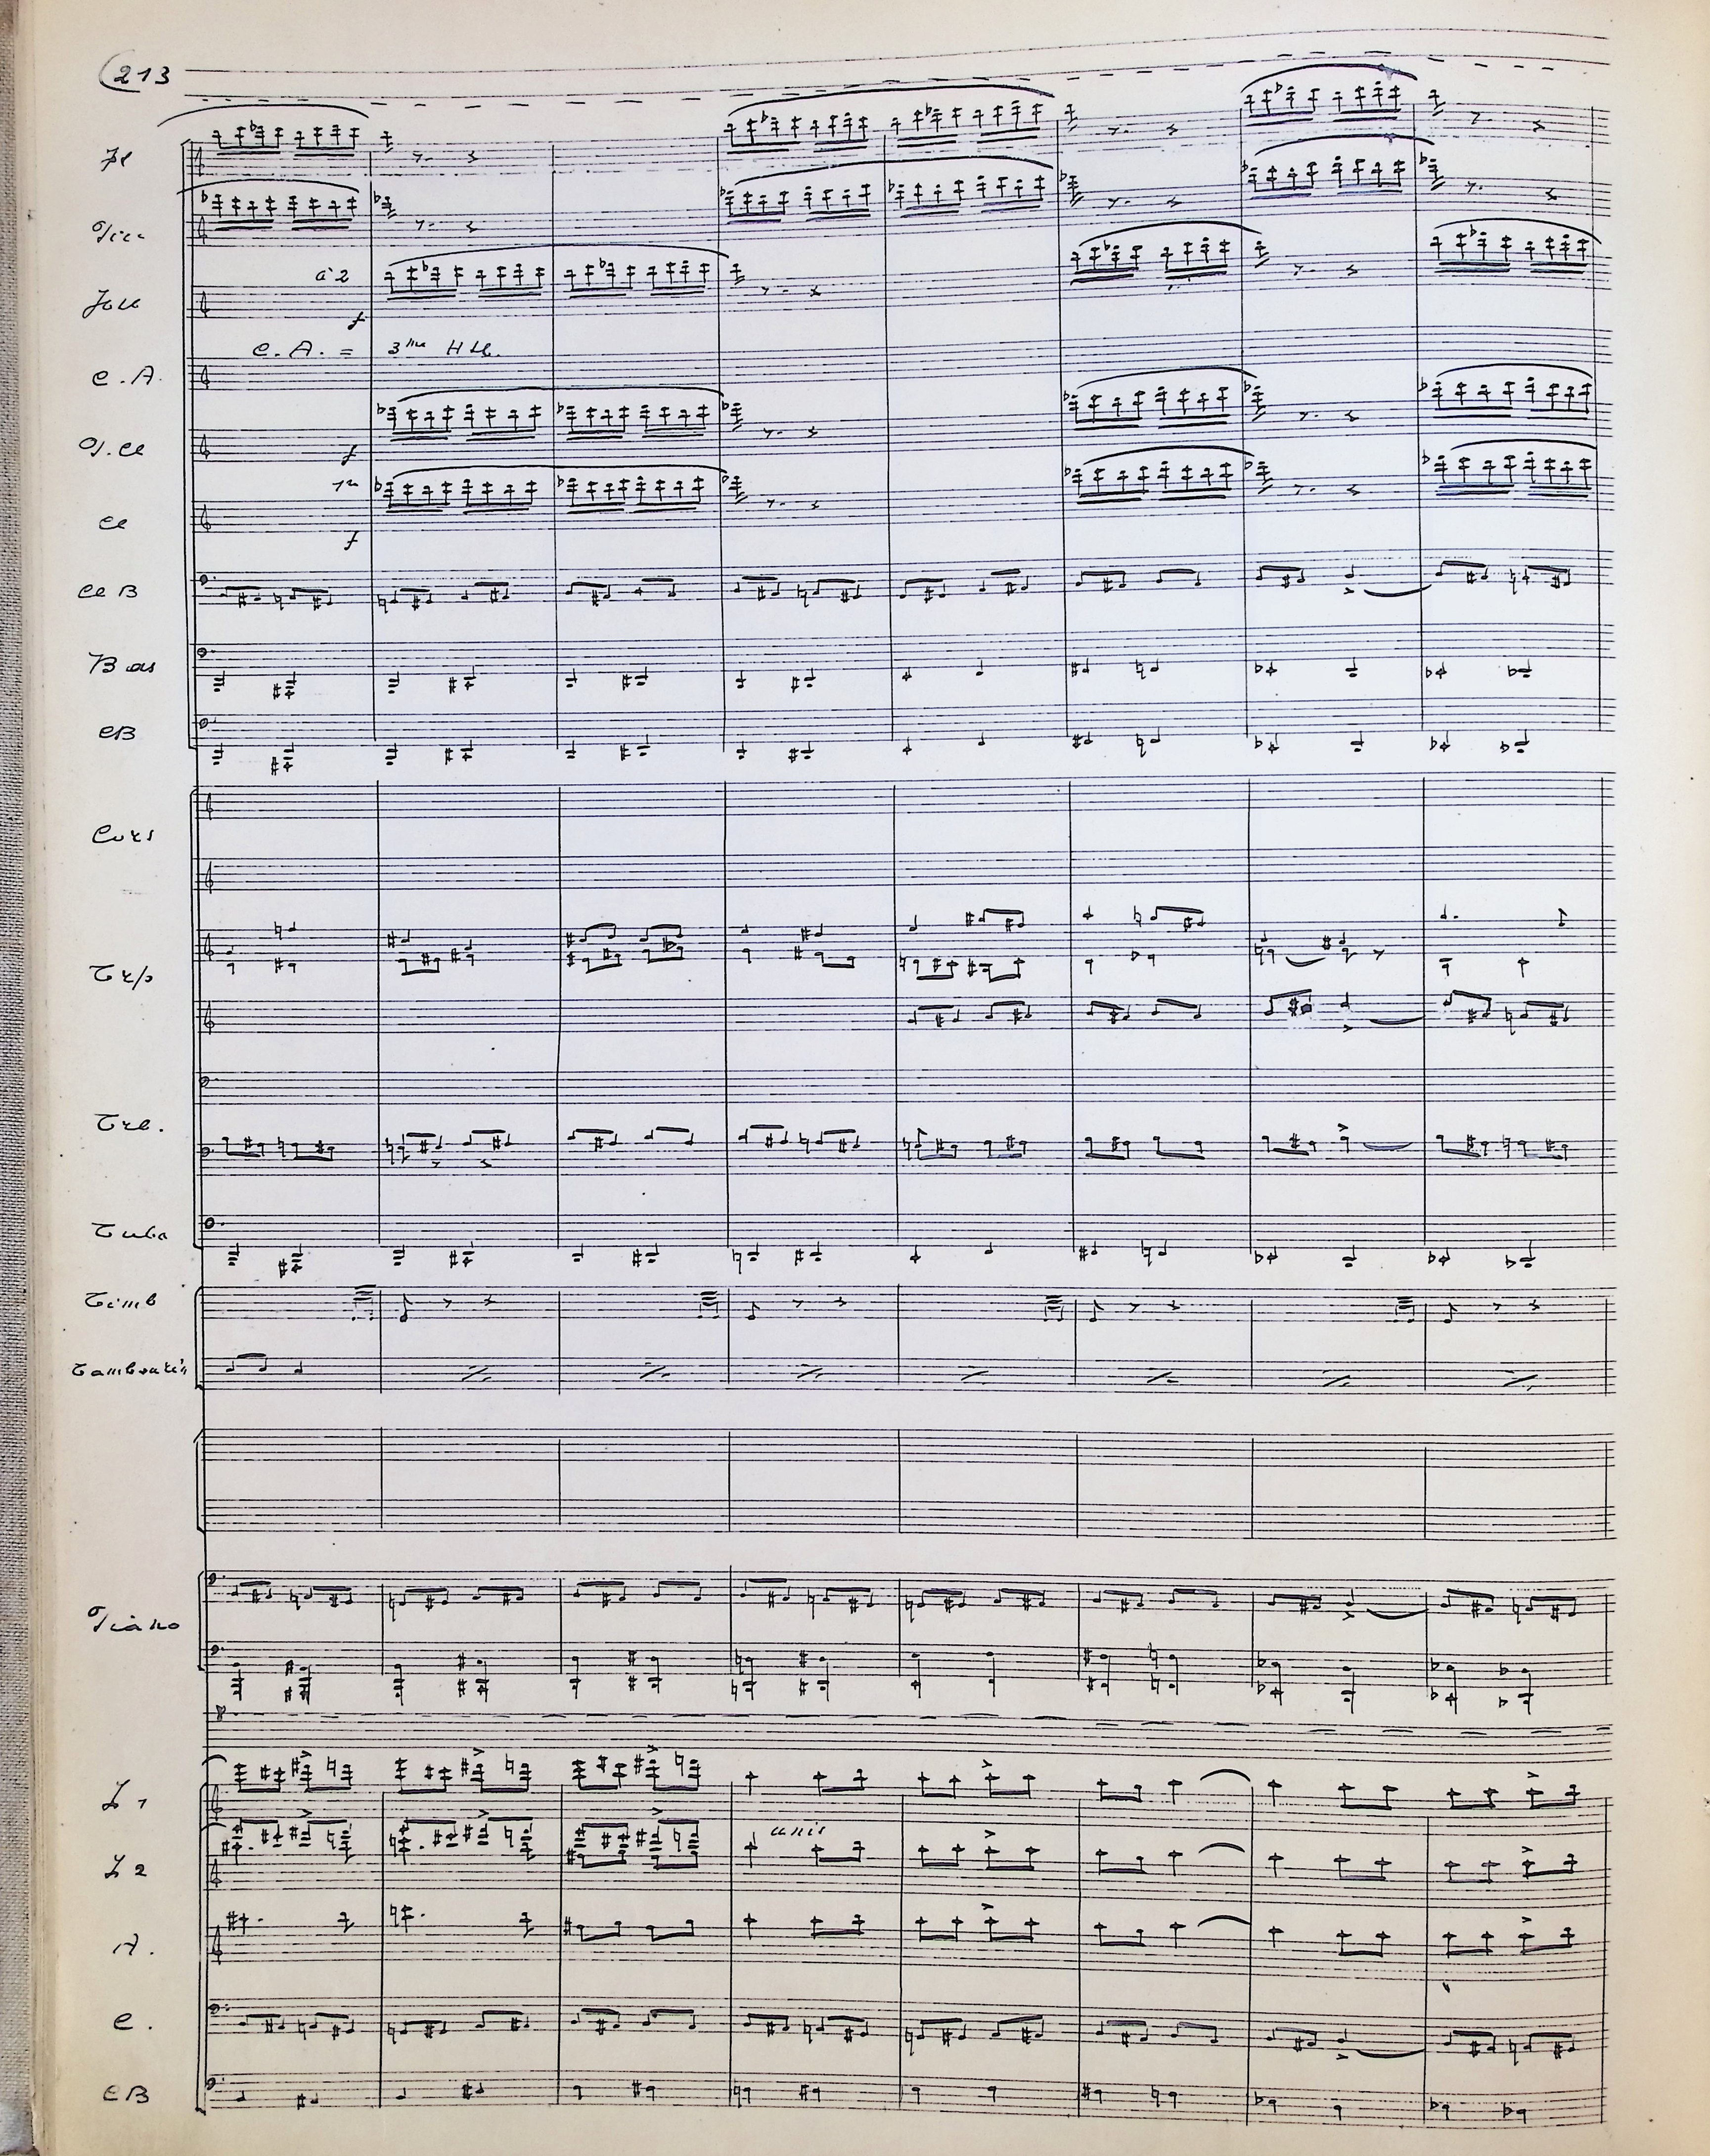 213
Fl
Picc
à 2
Htb
f
C.A. = 3me Htb.
C.A.
P.Cl
f
1er
Cl
f
Cl B
Bas
CB
Cors
Trp
Trb.
Tuba
Timb
Tambourin
Piano
V 1
unis
V 2
A.
C.
CB